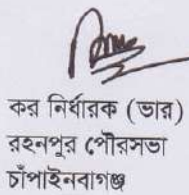 কর নির্ধারক (ভার)
রহনপুর পৌরসভা
চাঁপাইনবাগঞ্জ